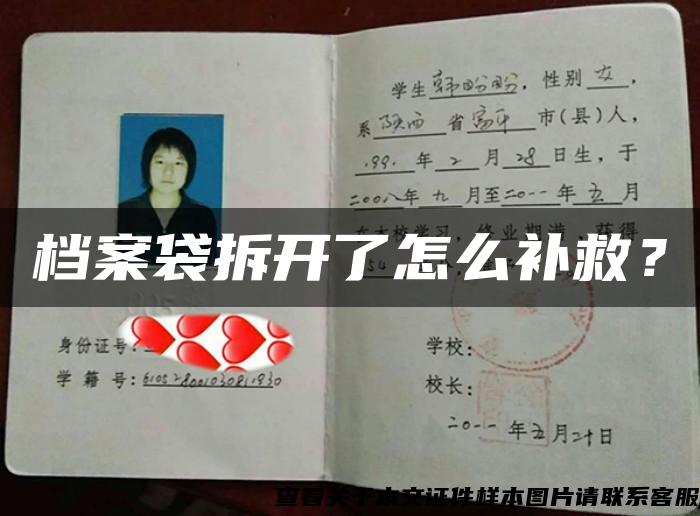 学生韩盼盼，性别女，
系陕西省富平市(县)人，
1991年2月28日生，于
二00八年九月至二0一一年五月
在本校学习，修业期满，获得
154
档案袋拆开了怎么补救？
身份证号：
学籍号：610528001030811930
学校：
校长：
二0一一年五月二十日
查看关于本文证件样本图片请联系客服